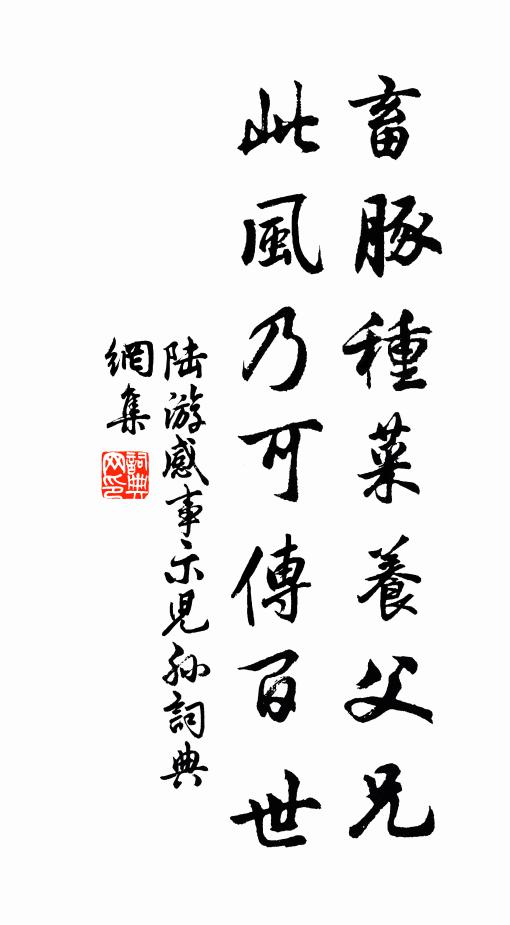 畜豚種菜養父兄
此風乃可傳百世
陆游感事示児孫詞典
網集
詞典
网印